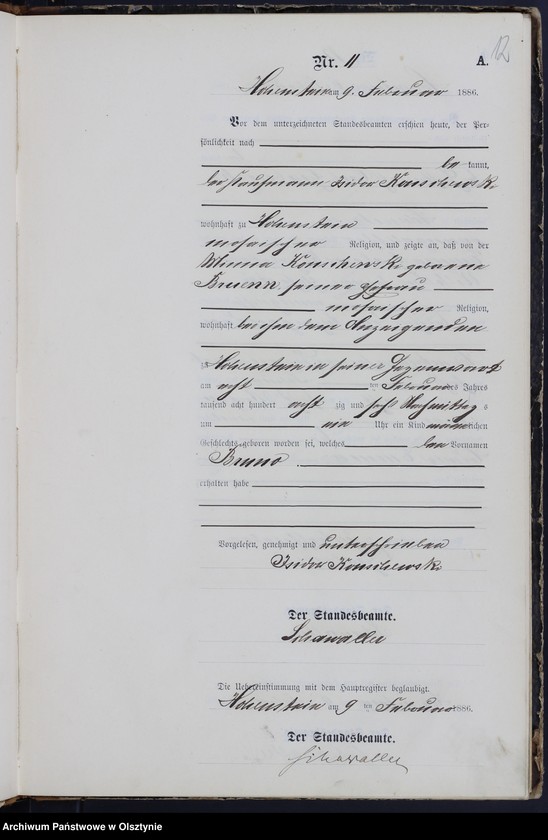 12
Nr. 11 A.
Hohenstein am 9. Februar 1886.
Vor dem unterzeichneten Standesbeamten erschien heute, der Per-
sönlichkeit nach
be kannt,
der Kaufmann Isidor
wohnhaft zu Hohenstein
mosaischer Religion, und zeigte an, daß von der
geborene
seiner Ehefrau
mosaischer Religion,
wohnhaft bei ihm dem Anzeigenden
zu Hohenstein in seiner Gegenwart
am acht ten Februar des Jahres
tausend acht hundert acht zig und sechs Nachmittags
um ein Uhr ein Kind männlichen
Geschlechts geboren worden sei, welches den Vornamen
Bruno
erhalten habe
Vorgelesen, genehmigt und unterschrieben
Isidor
Der Standesbeamte.
Schawaller
Die Uebereinstimmung mit dem Hauptregister beglaubigt.
Hohenstein am 9 ten Februar 1886.
Der Standesbeamte.
Schawaller
Archiwum Państwowe w Olsztynie